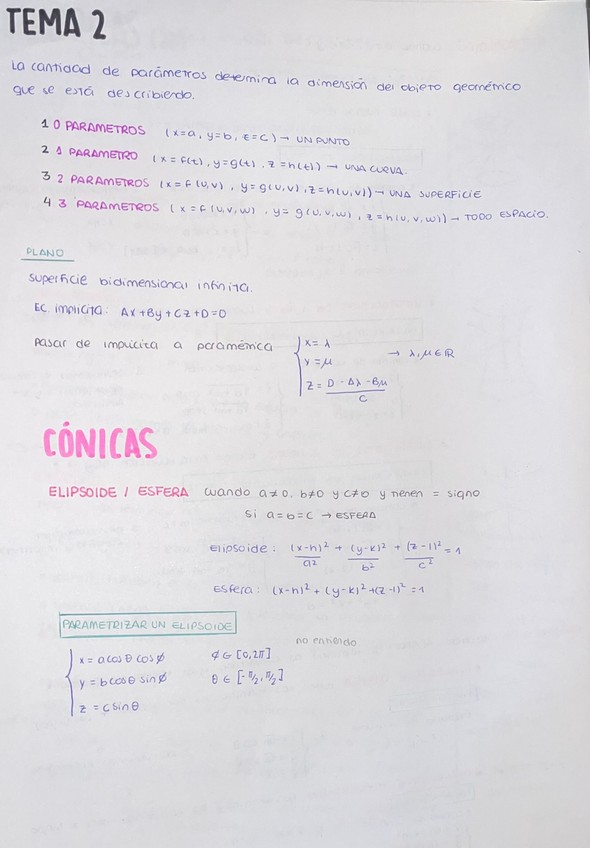 TEMA 2
La cantidad de parámetros determina la dimensión del objeto geométrico
que se está describiendo.
1 0 PARAMETROS (x=a, y=b, z=c) → UN PUNTO
2 1 PARAMETRO (x=f(t), y=g(t), z=h(t)) → UNA CURVA.
3 2 PARAMETROS (x=f(u,v), y=g(u,v), z=h(u,v)) → UNA SUPERFICIE
4 3 PARAMETROS (x=f(u,v,w), y=g(u,v,w), z=h(u,v,w)) → TODO ESPACIO.
PLANO
superficie bidimensional infinita.
EC. implícita: Ax+By+Cz+D=0
Pasar de implícita a paramétrica { x=λ
y=μ → λ, μ ∈ ℝ
z = (D - Aλ - Bμ)/C
CÓNICAS
ELIPSOIDE / ESFERA cuando a≠0, b≠0 y c≠0 y tienen = signo
Si a=b=c → ESFERA
Elipsoide: (x-h)²/a² + (y-k)²/b² + (z-l)²/c² = 1
Esfera: (x-h)² + (y-k)² + (z-l)² = 1
PARAMETRIZAR UN ELIPSOIDE
no entiendo
{ x = a cos θ cos ϕ ϕ ∈ [0, 2π]
y = b cos θ sin ϕ θ ∈ [-π/2, π/2]
z = c sin θ